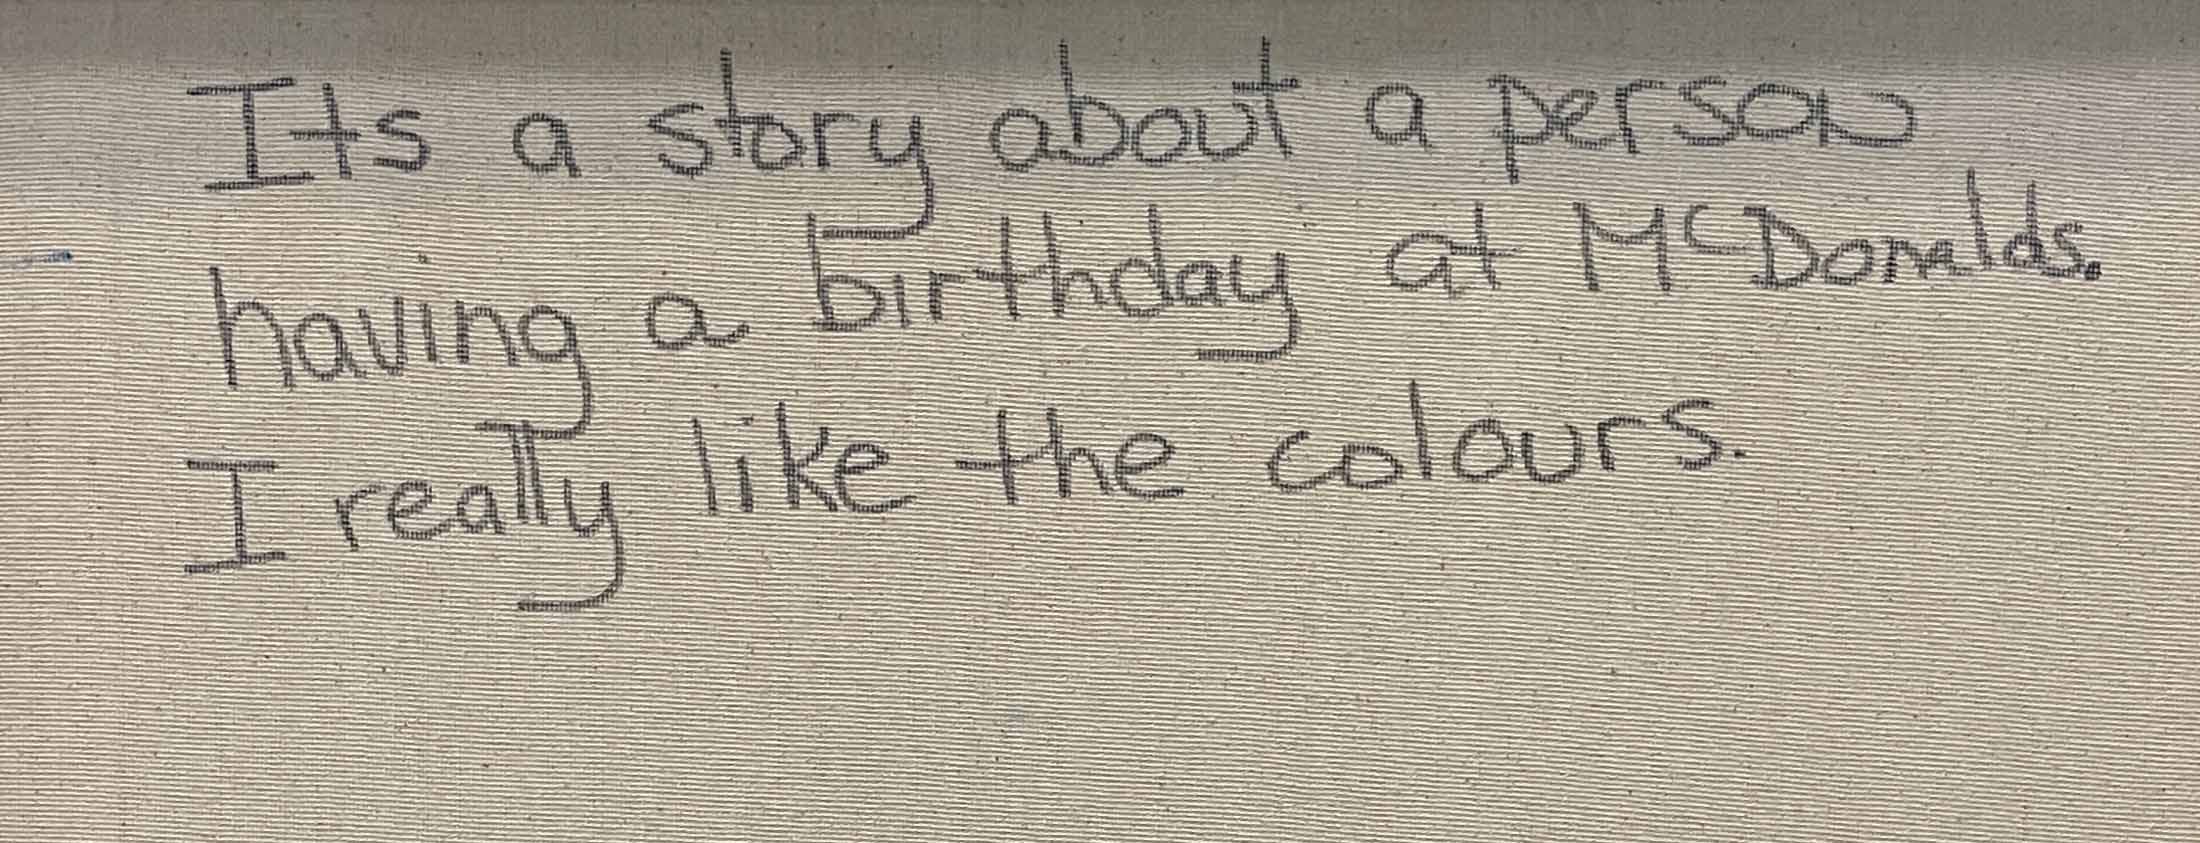 Its a story about a person
having a birthday at McDonalds.
I really like the colours.